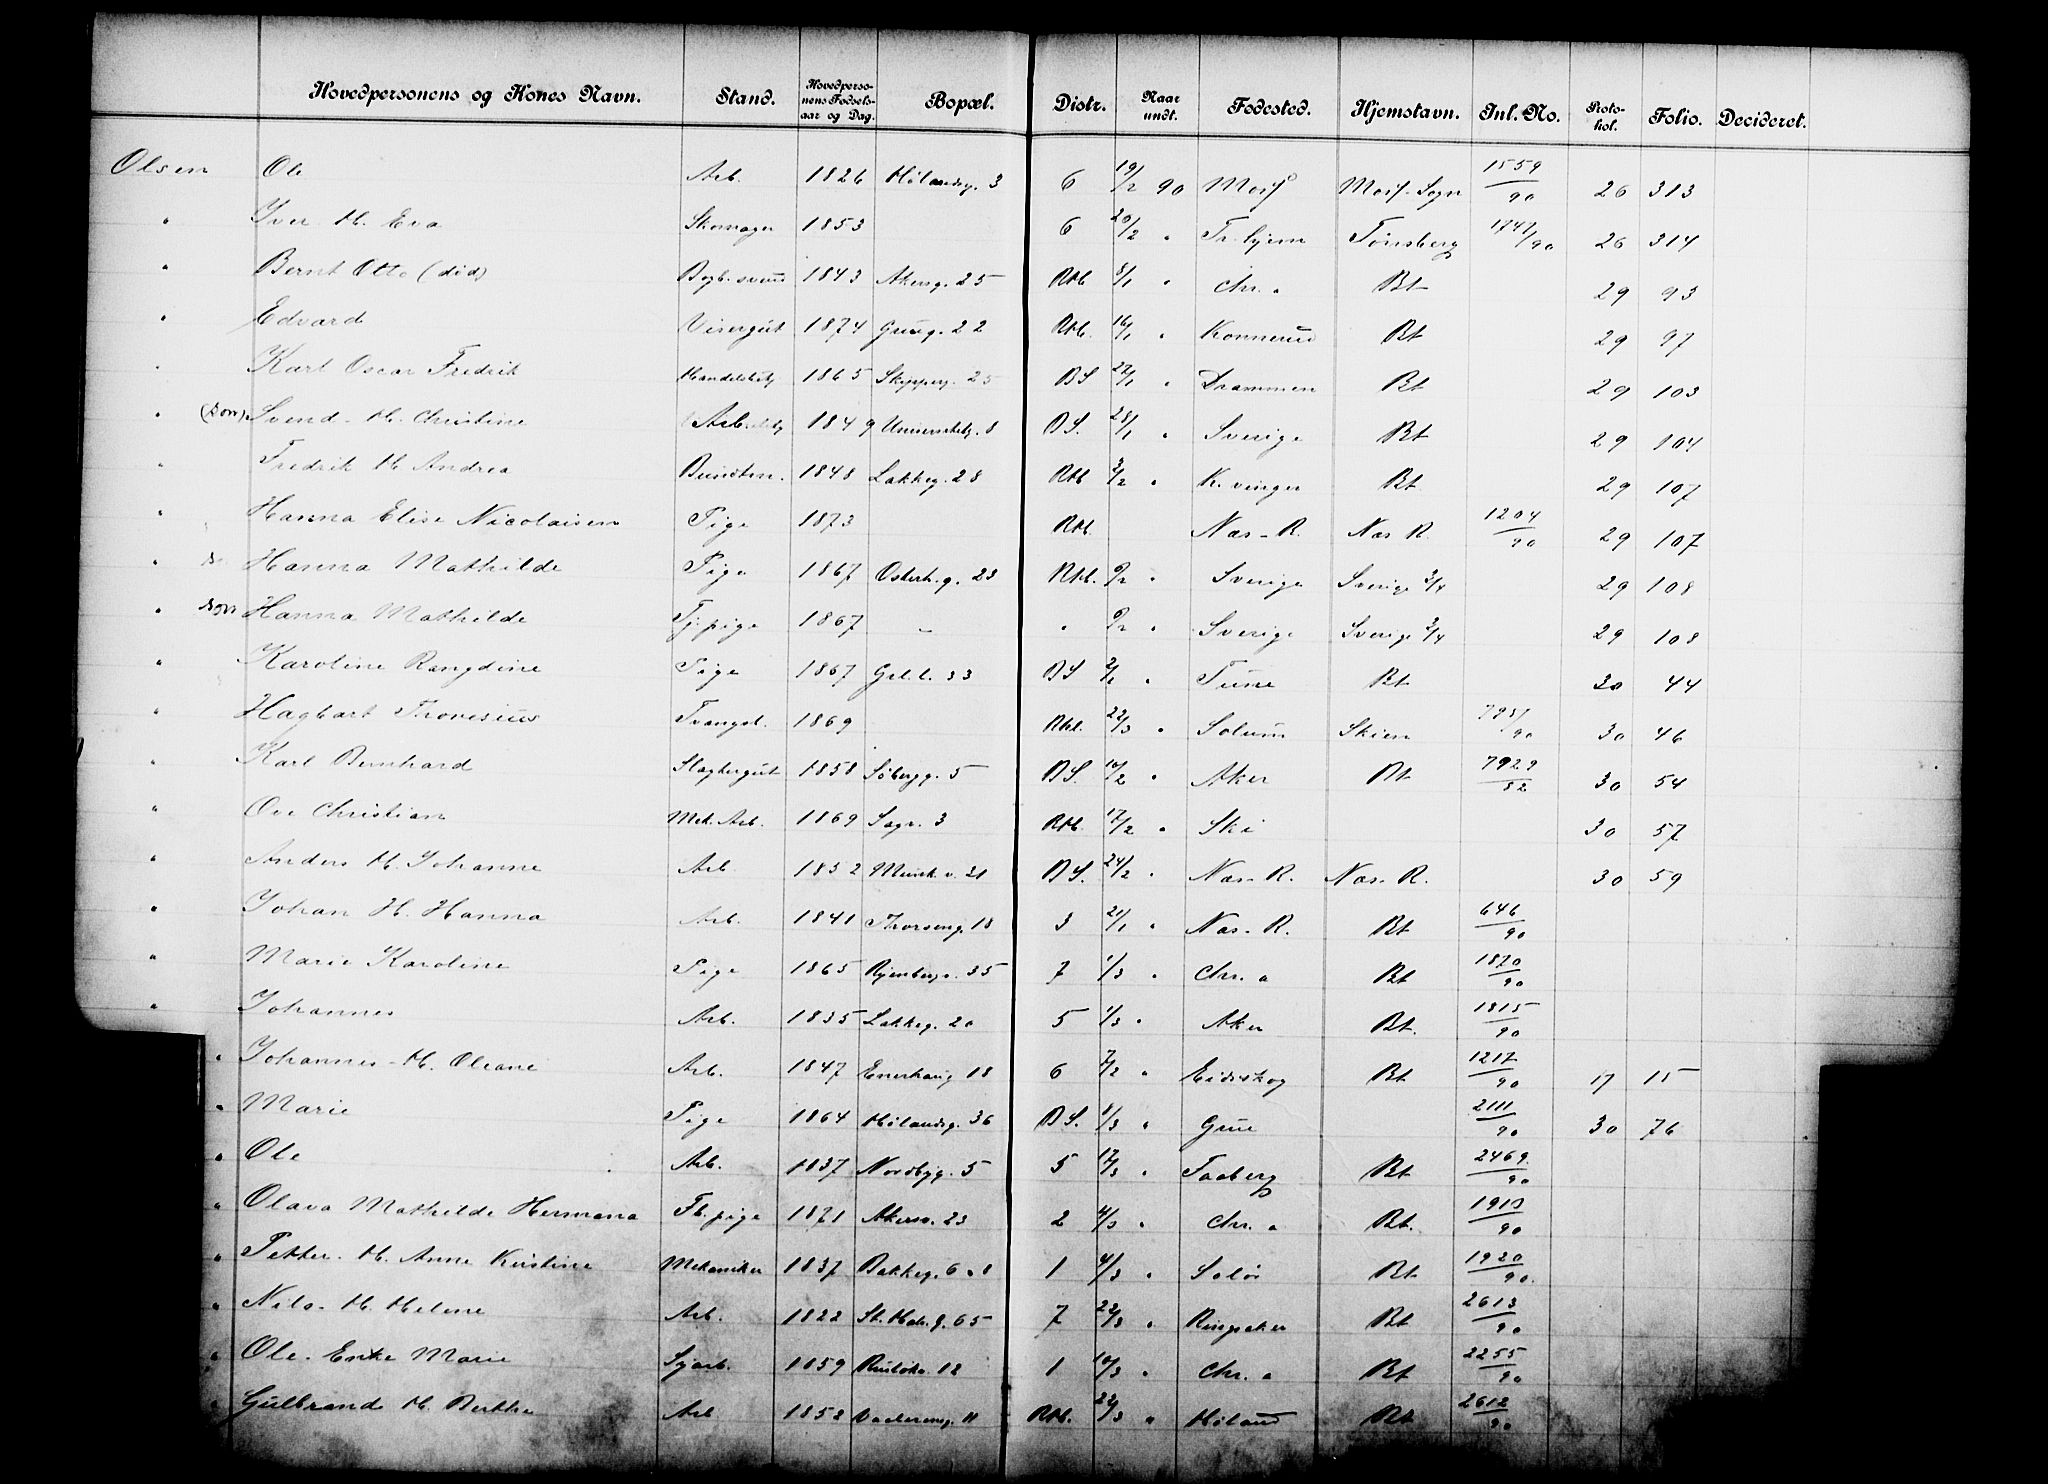 Hovedpersonens og Kones Navn. Stand. Hovedperso-nens Fødsels-aar og Dag. Bopæl. Distr. Naar undt. Fødested. Hjemstavn. Inl. No. Proto-kol. Folio. Decideret.
Olsen Ole Arb. 1826 Hølandsg. 3 6 19/2 90 Moss Moss Sogn 1559/90 26 313
" Iver H. Eva Skomager 1853 6 20/2 " Tr.hjem Tønsberg 1747/90 26 314
" Bernt Otto (død) Bogb.svend 1843 Akersg. 25 Rtb 8/1 " Chr.a Bt 29 93
" Edvard Visergut 1874 Grueg. 22 Rtb. 16/1 " Konnerud Bt 29 97
" Karl Oscar Fredrik Handelsbetj 1865 Skipperg. 25 BS 22/1 " Drammen Bt 29 103
" Svend H. Christine Arb. 1849 Universitetg. 8 BS. 28/1 " Sverige Bt 29 104
" Fredrik H Andrea 1848 Lakkeg. 28 Rtb 3/2 " K.vinger Bt 29 107
" Hanna Elise Nicolaisen Pige 1873 Rtb. Næs-R. Næs R. 1204/90 29 107
" Hanna Mathilde Pige 1867 Osterh.g. 23 Rtb. 9/2 " Sverige Sverige 2/4 29 108
" Hanna Mathilde Tj.pige 1867 — " 9/2 " Sverige Sverige 2/4 29 108
" Karoline Rangdine Pige 1867 Grl.l. 33 BS 2/1 " Tune Bt 30 44
" Hagbart Tronesius Tvangsl. 1869 Rtb. 22/3 " Solum Skien 30 46
" Karl Bernhard Slagtergut 1858 Søbergg. 5 BS. 10/2 " Aker Bt 7929/82 30 54
" Ove Christian Mek. Arb. 1869 Sagv. 3 Rtb. 17/2 " Ski 30 57
" Anders H. Johanne Arb. 1852 Munk.v. 31 BS. 24/2 " Næs-R. Næs-R. 30 59
" Johan H. Hanna Arb. 1841 Thorseng. 18 3 21/1 " Næs-R. Bt 646/90
" Marie Karoline Pige 1865 Rjenbergv. 35 7 1/3 " Chr.a Bt 1870/90
" Johannes Arb. 1835 Lakkeg. 20 5 1/3 " Aker Bt. 1815/90
" Johannes - H. Oleane Arb. 1847 Enerhaug 18 6 7/2 " Eidskog Bt 1217/90 17 15
" Marie Pige 1864 Hølandsg. 36 BS. 8/3 " Grue 2111/90 30 76
" Ole Arb. 1837 Nordbyg. 5 5 17/3 " Faaberg Bt 2469/90
" Olava Mathilde Hermana Fb.pige 1871 Akersv. 23 2 4/3 " Chr.a Bt. 1913/90
" Petter H. Anne Kirstine Mekaniker 1837 Bakkeg. 6 a 8 1 4/3 " Solør Bt 1920/90.
" Nils H. Helene Arb. 1822 St. Halv.g. 65 7 22/3 " Ringsaker Bt 2613/90
" Ole. Enke Marie Sjarb. 1859 Ruseløkv. 12 1 10/3 " Chr.a Bt 2255/90
" Gulbrand H. Berthe Arb 1852 Vaalereng. 11 Rtb. 22/3 " Høland Bt 2612/90